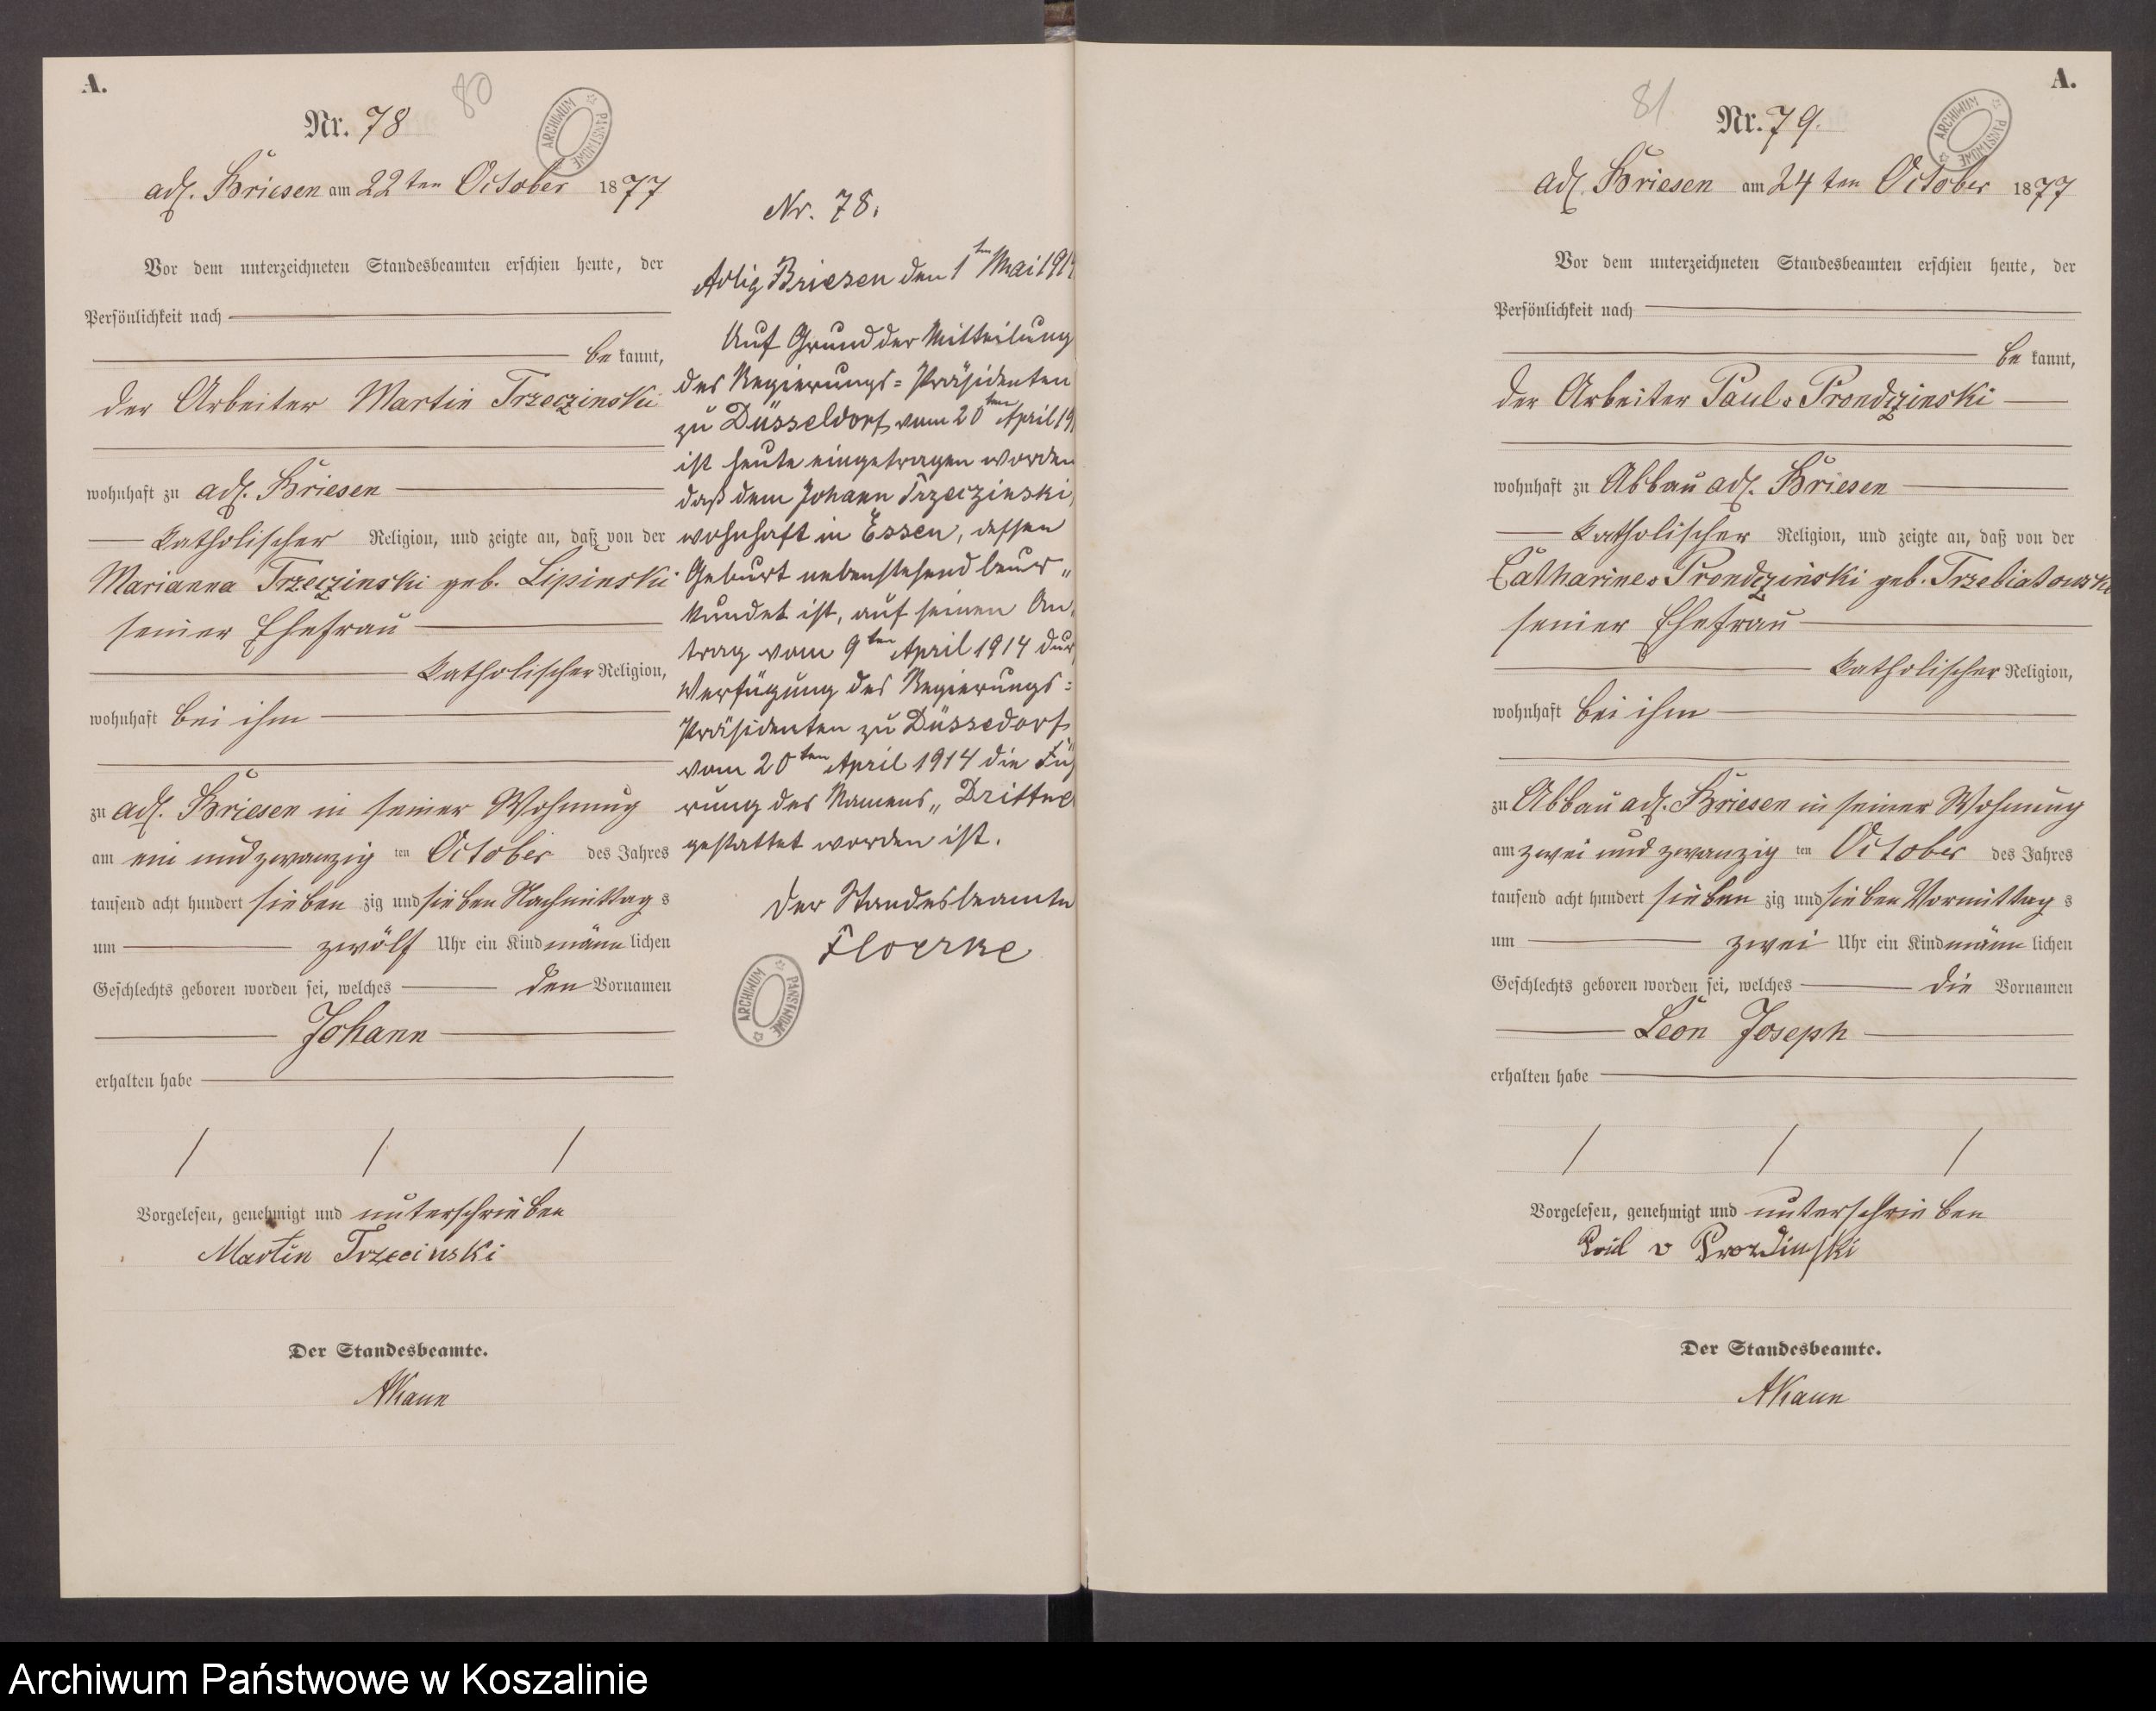 A.
80
Nr. 78
ARCHIWUM PAŃSTWOWE
adl. Briesen am 22ten October 1877
Vor dem unterzeichneten Standesbeamten erschien heute, der
Persönlichkeit nach
be kannt,
der Arbeiter Martin Trzeczinski
wohnhaft zu adl. Briesen
katholischer Religion, und zeigte an, daß von der
Marianna Trzeczinski geb. Lipinski
seiner Ehefrau
katholischer Religion,
wohnhaft bei ihm
zu adl. Briesen in seiner Wohnung
am ein und zwanzig ten October des Jahres
tausend acht hundert sieben zig und sieben Nachmittag s
um zwölf Uhr ein Kind männ lichen
Geschlechts geboren worden sei, welches den Vornamen
Johann
erhalten habe
Vorgelesen, genehmigt und unterschrieben
Martin Trzecinski
Der Standesbeamte.
AKann
Nr. 78.
Adlig Briesen den 1ten Mai 191
Auf Grund der Mitteilung
des Regierungs=Präsidenten
zu Düsseldorf vom 20ten April 19
ist heute eingetragen worden
daß dem Johann Trzeczinski,
wohnhaft in Essen, dessen
Geburt nebenstehend beur„
kundet ist, auf seinen An„
trag vom 9ten April 1914 dur
Verfügung des Regierungs=
Präsidenten zu Düssedorf
vom 20ten April 1914 die Füh
rung des Namens „Drittel
gestattet worden ist.
Der Standesbeamte
Floerke
ARCHIWUM PAŃSTWOWE
A.
81
Nr. 79.
ARCHIWUM PAŃSTWOWE
adl. Briesen am 24ten October 1877
Vor dem unterzeichneten Standesbeamten erschien heute, der
Persönlichkeit nach
be kannt,
der Arbeiter Paul v Prondzinski
wohnhaft zu Abbau adl. Briesen
katholischer Religion, und zeigte an, daß von der
Catharine v Prondzinski geb. Trzebiatowski
seiner Ehefrau
katholischer Religion,
wohnhaft bei ihm
zu Abbau adl. Briesen in seiner Wohnung
am zwei und zwanzig ten October des Jahres
tausend acht hundert sieben zig und sieben Vormittag s
um zwei Uhr ein Kind männ lichen
Geschlechts geboren worden sei, welches die Vornamen
Leon Joseph
erhalten habe
Vorgelesen, genehmigt und unterschrieben
Paul v Prondinski
Der Standesbeamte.
AKann
Archiwum Państwowe w Koszalinie